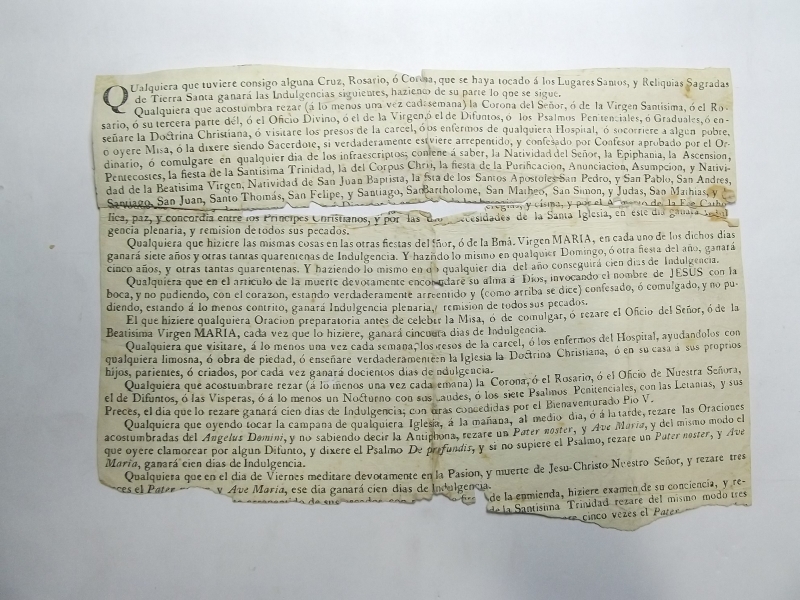 QUalquiera que tuviere consigo alguna Cruz, Rosario, ó Corona, que se haya tocado á los Lugares Santos, y Reliquias Sagradas
de Tierra Santa ganará las Indulgencias siguientes, haziendo de su parte lo que se sigue.
Qualquiera que acostumbra rezar (á lo menos una vez cada semana) la Corona del Señor, ó de la Virgen Santisima, ó el Ro-
sario, ó su tercera parte dél, ó el Oficio Divino, ó el de la Virgen, ó el de Difuntos, ó los Psalmos Penitenciales, ó Graduales, ó en-
señare la Doctrina Christiana, ó visitare los presos de la carcel, ó los enfermos de qualquiera Hospital, ó socorriere a algun pobre,
o oyere Misa, ó la dixere siendo Sacerdote, si verdaderamente estuviere arrepentido, y confesado por Confesor aprobado por el Or-
dinario, ó comulgare en qualquier dia de los infraescriptos; conviene á saber, la Natividad del Señor, la Epiphania, la Ascension,
Pentecostes, la fiesta de la Santisima Trinidad, la del Corpus Christi, la fiesta de la Purificacion, Anunciacion, Asumpcion, y Nativi-
dad de la Beatisima Virgen, Natividad de San Juan Baptista, la fiesta de los Santos Apostoles San Pedro, y San Pablo, San Andres,
Santiago, San Juan, Santo Thomás, San Felipe, y Santiago, San Bartholome, San Matheo, San Simon, y Judas, San Mathias,
y cisma, y por el de la Fee Catho-
lica, paz, y concordia entre los Principes Christianos, y por las necesidades de la Santa Iglesia, en este dia ganará
gencia plenaria, y remision de todos sus pecados.
Qualquiera que hiziere las mismas cosas en las otras fiestas del Señor, ó de la Bmâ. Virgen MARIA, en cada uno de los dichos dias
ganará siete años y otras tantas quarentenas de Indulgencia. Y haziendo lo mismo en qualquier Domingo, ó otra fiesta del año, ganará
cinco años, y otras tantas quarentenas. Y haziendo lo mismo en qualquier dia del año conseguirá cien dias de Indulgencia.
Qualquiera que en el articulo de la muerte devotamente encomendare su alma á Dios, invocando el nombre de JESUS con la
boca, y no pudiendo, con el corazon, estando verdaderamente arrepentido y (como arriba se dice) confesado, ó comulgado, y no pu-
diendo, estando á lo menos contrito, ganará Indulgencia plenaria, y remision de todos sus pecados.
El que hiziere qualquiera Oracion preparatoria antes de celebrar la Misa, ó de comulgar, ó rezare el Oficio del Señor, ó de la
Beatisima Virgen MARIA, cada vez que lo hiziere, ganará cincuenta dias de Indulgencia.
Qualquiera que visitare, á lo menos una vez cada semana, los presos de la carcel, ó los enfermos del Hospital, ayudandolos con
qualquiera limosna, ó obra de piedad, ó enseñare verdaderamente en la Iglesia la Doctrina Christiana, ó en su casa a sus proprios
hijos, parientes, ó criados, por cada vez ganará docientos dias de Indulgencia.
Qualquiera que acostumbrare rezar (á lo menos una vez cada semana) la Corona, ó el Rosario, ó el Oficio de Nuestra Señora,
el de Difuntos, ó las Visperas, ó á lo menos un Nocturno con sus Laudes, ó los siete Psalmos Penitenciales, con las Letanias, y sus
Preces, el dia que lo rezare ganará cien dias de Indulgencia, con otras concedidas por el Bienaventurado Pio V.
Qualquiera que oyendo tocar la campana de qualquiera Iglesia, á la mañana, al medio dia, ó á la tarde, rezare las Oraciones
acostumbradas del Angelus Domini, y no sabiendo decir la Antiphona, rezare un Pater noster, y Ave Maria, y del mismo modo el
que oyere clamorear por algun Difunto, y dixere el Psalmo De profundis, y si no supiere el Psalmo, rezare un Pater noster, y Ave
Maria, ganará cien dias de Indulgencia.
Qualquiera que en el dia de Viernes meditare devotamente en la Pasion, y muerte de Jesu-Christo Nuestro Señor, y rezare tres
veces el Pater y Ave Maria, ese dia ganará cien dias de Indulgencia.
de sus pecados con de la enmienda, hiziere examen de su conciencia, y re-
de la Santisima Trinidad rezare del mismo modo tres
cinco vezes el Pater